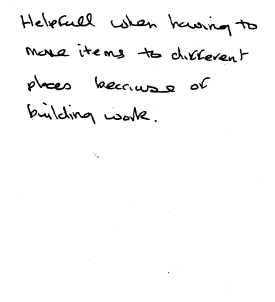 Helpfull when having to
move items to different
places because of
building work.